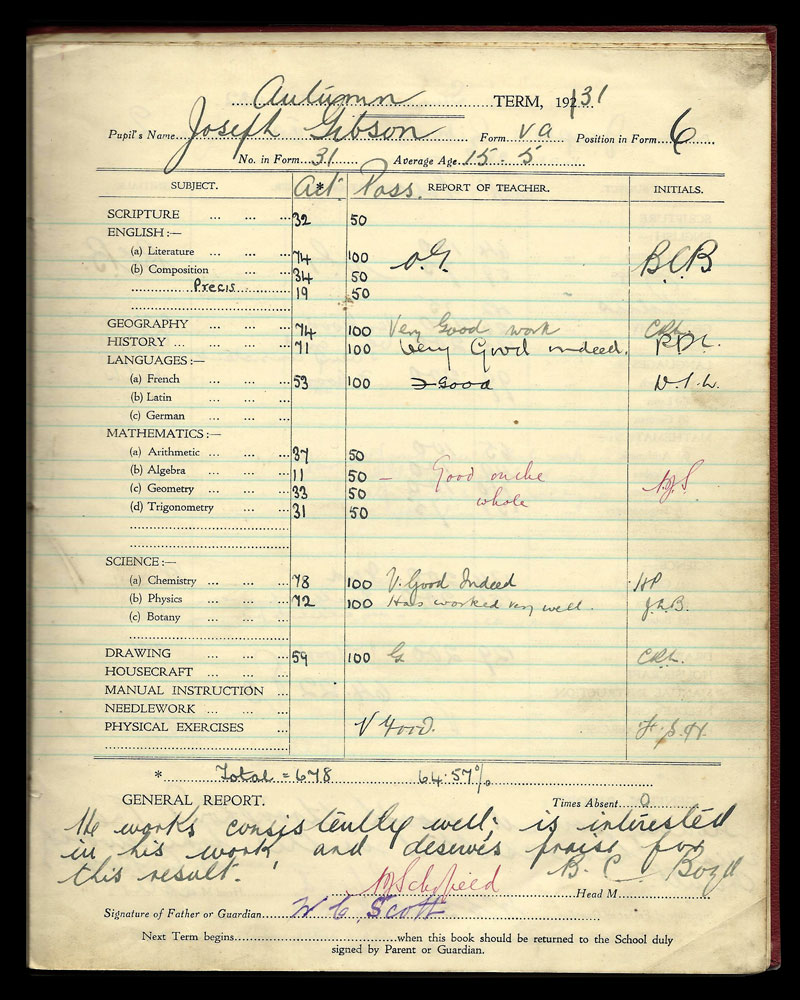 Autumn TERM, 1931
Pupil's Name Joseph Gibson Form Va Position in Form 6
No. in Form 31 Average Age 15 . 5
SUBJECT. Act* Poss. REPORT OF TEACHER. INITIALS.
SCRIPTURE ... ... ... 32 50
ENGLISH:—
(a) Literature ... ... 74 100 B.C.B
(b) Composition ... 34 50
Precis 19 50
GEOGRAPHY ... ... 74 100 Very Good work
HISTORY ... ... ... ... 71 100 Very Good indeed.
LANGUAGES:—
(a) French ... ... ... 53 100 Good
(b) Latin ... ... ...
(c) German ... ... ...
MATHEMATICS:—
(a) Arithmetic ... ... 37 50
(b) Algebra ... ... 11 50 – Good on the
(c) Geometry ... ... 33 50 whole
(d) Trigonometry ... 31 50
SCIENCE:—
(a) Chemistry ... ... 78 100 V. Good Indeed HP
(b) Physics ... ... ... 72 100 Has worked very well. J.L.B.
(c) Botany ... ...
DRAWING ... ... ... 59 100 G
HOUSECRAFT ... ...
MANUAL INSTRUCTION ...
NEEDLEWORK ... ...
PHYSICAL EXERCISES ... V Good.
* Total = 678 64·57%
GENERAL REPORT. Times Absent 0
He works consistently well: is interested
in his work and deserves praise for
this result. B. C. Boyd
M Schofield Head M
Signature of Father or Guardian W C Scott
Next Term begins when this book should be returned to the School duly
signed by Parent or Guardian.